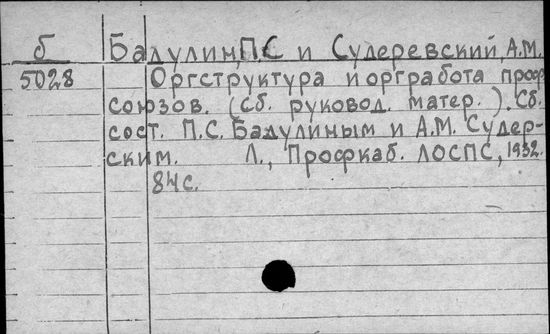 б
5028
Бадулин П.С и Судеревский, А.М.
Оргструктура и оргработа проф
союзов. (Сб. руковод. матер.). Сб.
сост. П.С. Бадулиным и А.М. Судер-
ским. Л., Профкаб. ЛОСПС, 1932.
84с.